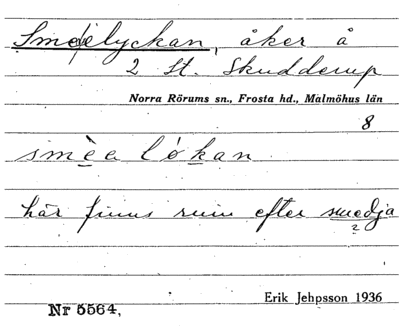 Smedelyckan, åker å
2 St. Skudderup
Norra Rörums sn., Frosta hd., Malmöhus län
8
smèa lòkan
här finns ruin efter smedja
2
Erik Jehpsson 1936
Nr 5564,